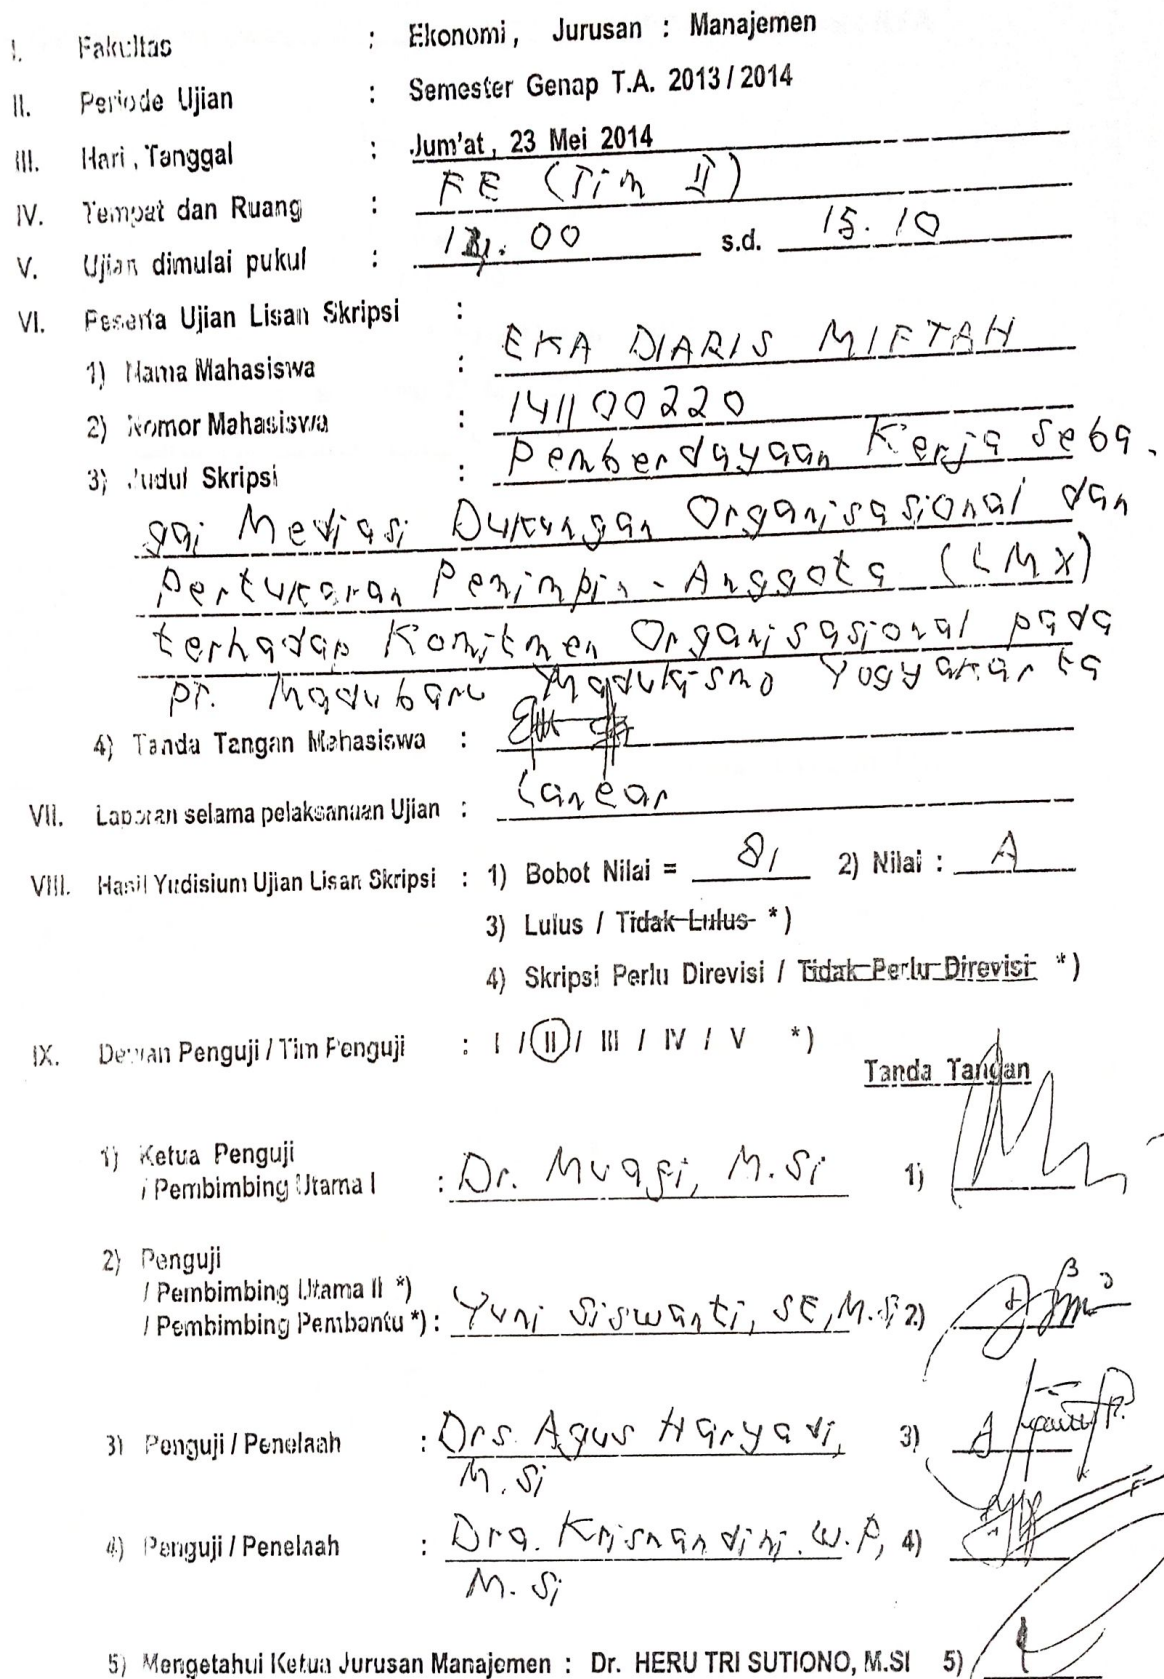 I. Fakultas : Ekonomi, Jurusan : Manajemen
II. Periode Ujian : Semester Genap T.A. 2013/2014
III. Hari, Tanggal : Jum'at, 23 Mei 2014
IV. Tempat dan Ruang : FE (Tim II)
V. Ujian dimulai pukul : .00 s.d. 15.10
VI. Peserta Ujian Lisan Skripsi :
1) Nama Mahasiswa : EKA DIARIS MIFTAH
2) Nomor Mahasiswa : 141100220
3) Judul Skripsi : Pemberdayaan Kerja seba-
gai Mediasi Dukungan Organisasional dan
Pertukaran Pemimpin - Anggota (LMX)
terhadap Komitmen Organisasional pada
PT. Madubaru Madukismo Yogyakarta
4) Tanda Tangan Mahasiswa :
VII. Laporan selama pelaksanaan Ujian : Lancar
VIII. Hasil Yudisium Ujian Lisan Skripsi : 1) Bobot Nilai = 81 2) Nilai : A
3) Lulus / Tidak Lulus *)
4) Skripsi Perlu Direvisi / Tidak Perlu Direvisi *)
IX. Dewan Penguji / Tim Penguji : I / II / III / IV / V *)
Tanda Tangan
1) Ketua Penguji
/ Pembimbing Utama I : Dr. Muafi, M.Si 1)
2) Penguji
/ Pembimbing Utama II *)
/ Pembimbing Pembantu *) : Yuni Siswanti, SE, M.Si 2)
3) Penguji / Penelaah : Drs. Agus Haryadi, 3)
M.Si
4) Penguji / Penelaah : Dra. Krisnandini. W.P, 4)
M.Si
5) Mengetahui Ketua Jurusan Manajemen : Dr. HERU TRI SUTIONO, M.SI 5)